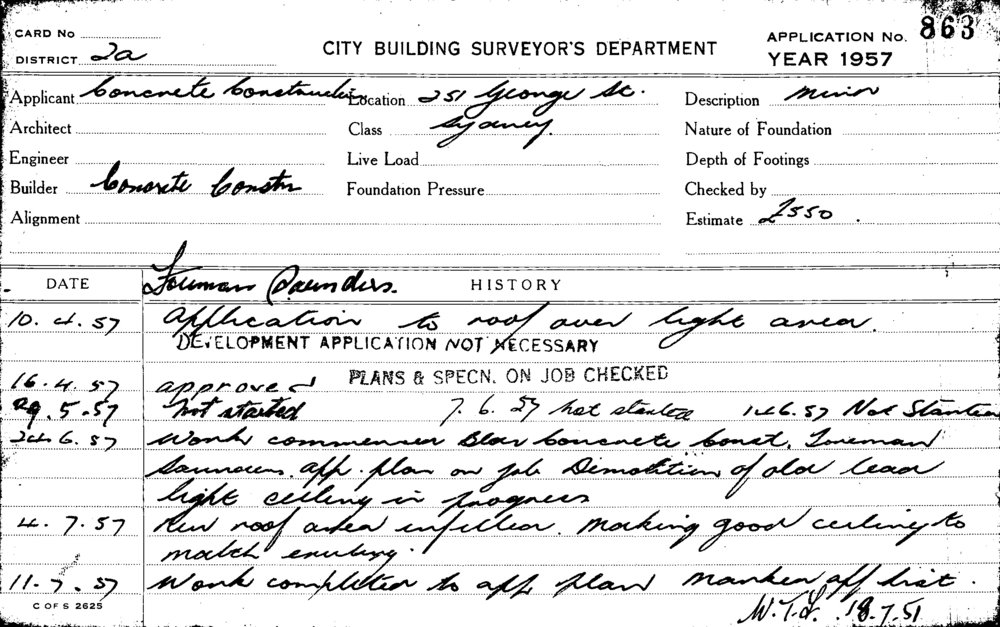 CARD No
DISTRICT 2a
CITY BUILDING SURVEYOR'S DEPARTMENT
APPLICATION No. 863
YEAR 1957
Applicant Concrete Constructn Location 251 George St. Description Minor
Architect Class Sydney. Nature of Foundation
Engineer Live Load Depth of Footings
Builder Concrete Constn Foundation Pressure Checked by
Alignment Estimate £550.
DATE Foreman Saunders. HISTORY
10.4.57 Application to roof over light area.
DEVELOPMENT APPLICATION NOT NECESSARY
16.4.57 approved PLANS & SPECN. ON JOB CHECKED
29.5.57 Not started 7.6.57 not started 14.6.57 Not Started
24.6.57 Work commenced Concrete Const. Foreman
Saunders. app. plan on job Demolition of old lead
light ceiling in progress
4.7.57 New roof area . making good ceiling to
match
11.7.57 Work completed to app plan marked off list.
C OF S 2625
18.7.51